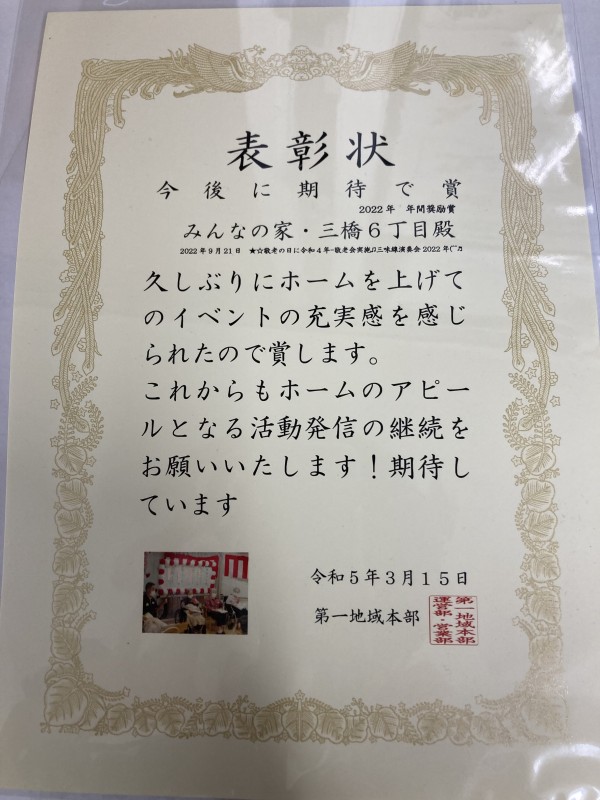 表彰状
今後に期待で賞
2022年 年間奨励賞
みんなの家・三橋６丁目殿
2022年9月21日 ★☆敬老の日に令和４年-敬老会実施♫三味線演奏会 2022年(^^♬
久しぶりにホームを上げて
のイベントの充実感を感じ
られたので賞します。
これからもホームのアピー
ルとなる活動発信の継続を
お願いいたします！期待し
ています
令和５年３月１５日
第一地域本部
第一地域本部
運営部・営業部